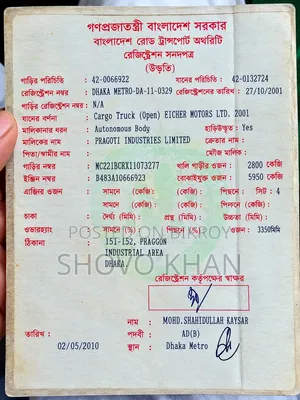 গণপ্রজাতন্ত্রী বাংলাদেশ সরকার
বাংলাদেশ রোড ট্রান্সপোর্ট অথরিটি
রেজিষ্ট্রেশন সনদপত্র
(উদ্ধৃতি)
গাড়ির পরিচিতি : 42-0066922 যানের পরিচিতি : 42-0132724
রেজিষ্ট্রেশন নম্বর : DHAKA METRO-DA-11-0329 তারিখ : 27/10/2001
গাড়ীর রেজিষ্ট্রেশন নম্বর : N/A
যানের বর্ণনা : Cargo Truck (Open) EICHER MOTORS LTD. 2001
মালিকানার ধরন : Autonomous Body হাড়িউন্ডৃত : Yes
মালিকের নাম : PRAGOTI INDUSTRIES LIMITED ক্রেতার নাম :
পিতা/স্বামীর নাম : মৌজ মালিক :
গাড়ির নম্বর : MC221BCRX11073277 খালি গাড়ীর ওজন : 2800 কেজি
ইঞ্জিন নম্বর : B483A10666923 বোঝাইযুক্ত ওজন : 5950 কেজি
এক্সেল ওজন : সামনে (কেজি) : সামনে (কেজি) : পিছনে : সিট : 4
সামনে (কেজি) : সামনে (কেজি) : পিছনে (কেজি) :
চাকা : দের্ঘ্য (মিমি) : প্রস্থ (মিমি) : উচ্চতা (মিমি) :
ওভারহ্যাং : সামনে (%) : পিছনে (%) : ওজন : 3350মিমি
ঠিকানা : 151-152, PRAGGON
INDUSTRIAL AREA
DHAKA
POSTED ON BIKROY
SHOVO KHAN
রেজিষ্ট্রেশন কর্তৃপক্ষের স্বাক্ষর
নাম : MOHD.SHAHIDULLAH KAYSAR
তারিখ : পদবী : AD(B)
02/05/2010 স্থান : Dhaka Metro